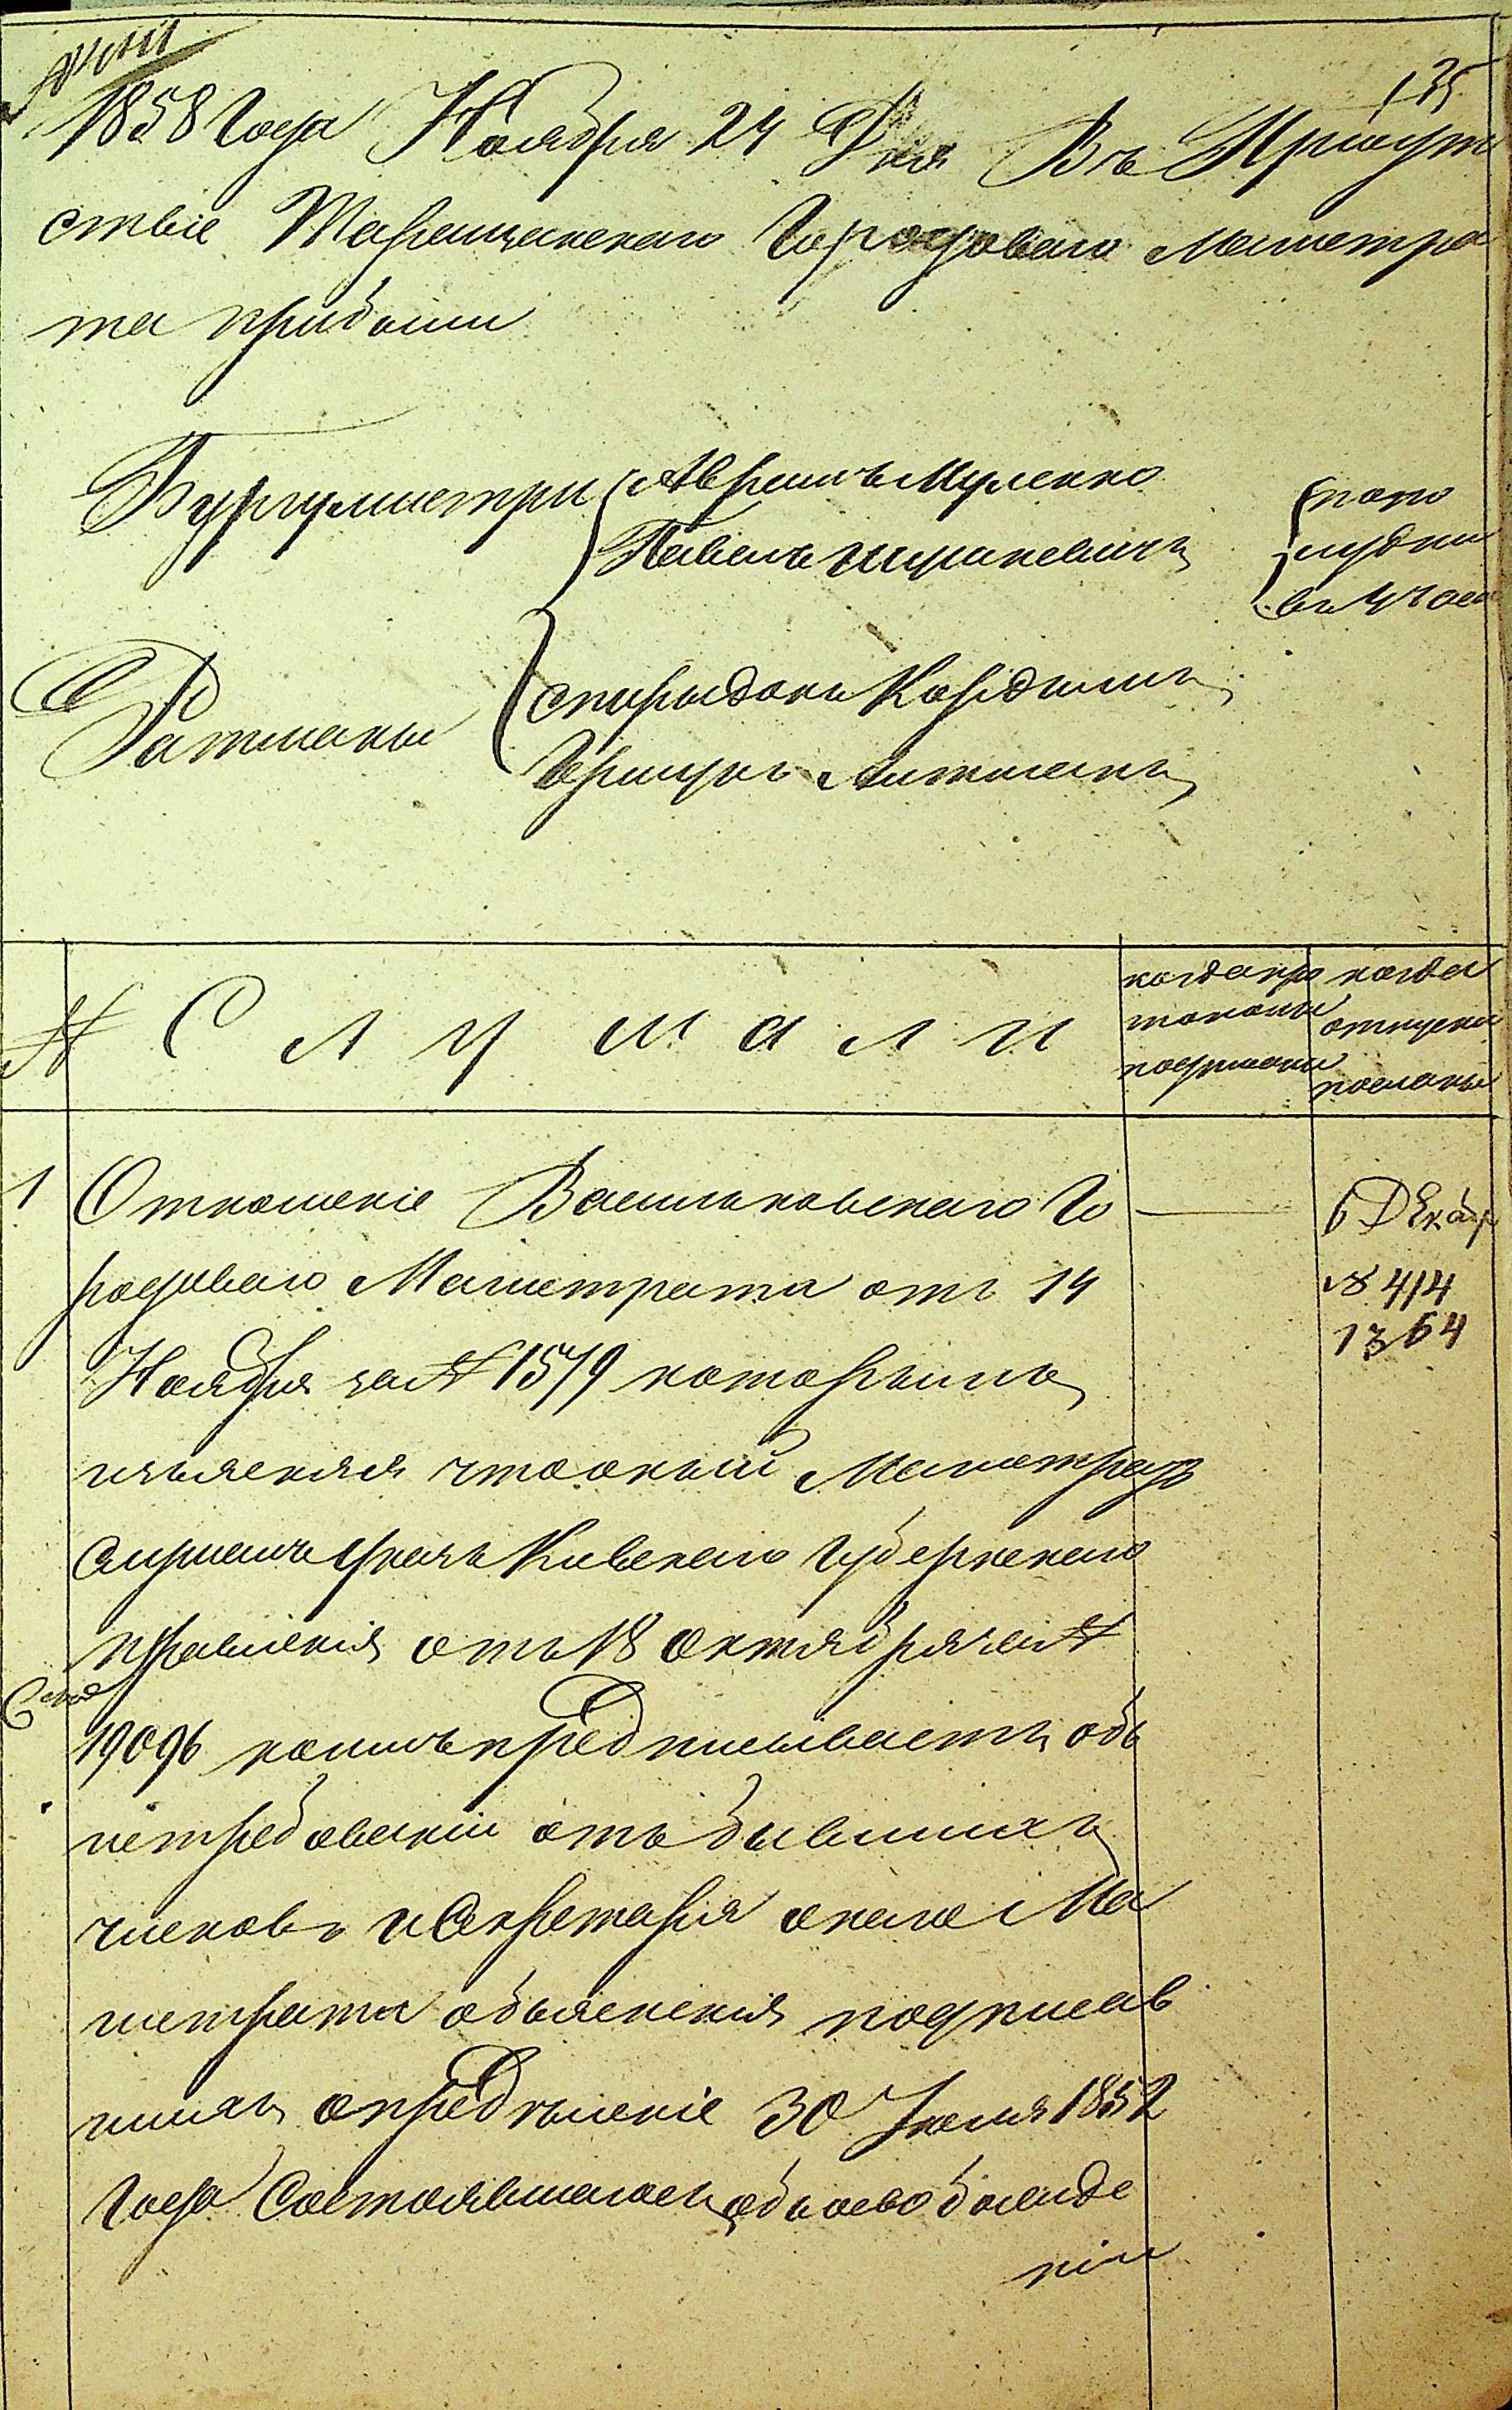 135
1858 года Ноября 24 Дня Въ Присут
ствіе Таращанского Городоваго Магистра
та прибыли
Бургумистри
Аврамъ Муленко
Павелъ
по по
лудни
въ 4 часа
Ратманы
спиридонъ
Гершунъ Литманъ
№ Слушали
когда про
токолы
подписаны
когда
отпуски
посланы
1 Отношеніе Васильковского Го
родоваго Магистрата отъ 14
Ноября за № 1579 которымъ
изъясняя что оный Магистратъ
слушалъ указъ Кіевского Губернского
правленія отъ 18 октября за №
19096 коимъ предписываетъ объ
истребованіи отъ бывшихъ
членовъ и Секретаря онаго Ма
гистрата объясненія подписав
шихъ опредѣленіе 30 Іюля 1852
года Состоявшагось объ освобожде
ніи
6 Декабр
№ 414
1364